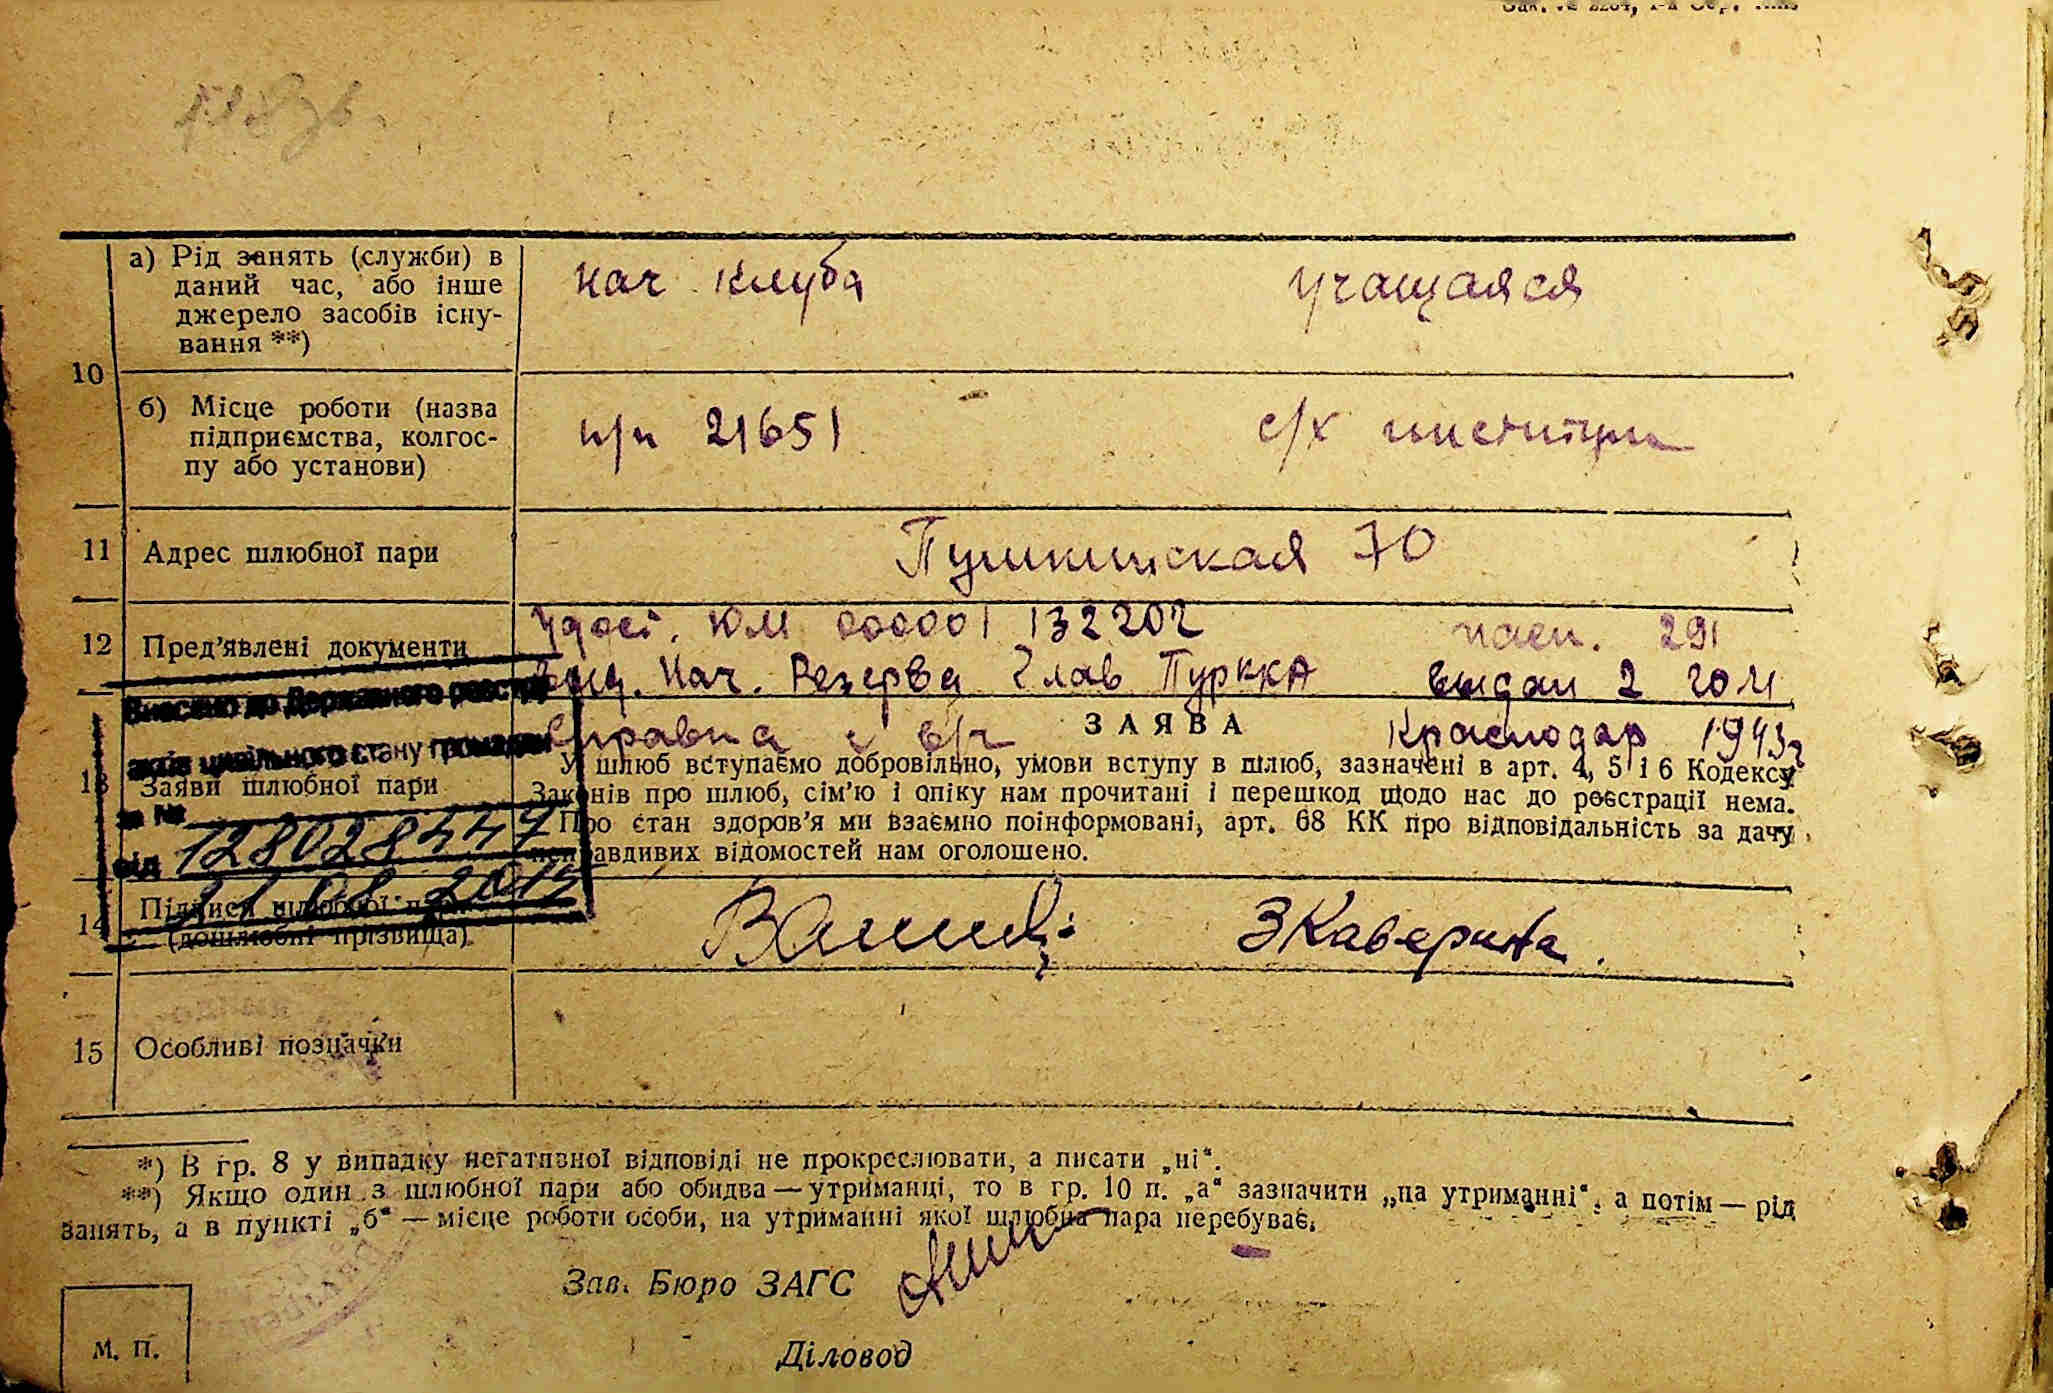 а) Рід занять (служби) в
даний час, або інше
джерело засобів існу-
вання **)
нач клуба
учащаяся
10
б) Місце роботи (назва
підприємства, колгос-
пу або установи)
п/п 21651
с/х институт
11 Адрес шлюбної пари
Пушкинская 70
12 Пред'явлені документи
Удост. ЮМ 000001 132202
пасп. 291
Нач. Резерва Глав ПурККА
выдан 2 гом
Справка с в/ч
Краснодар 1943г
Внесено до Державного реєстру
актів цивільного стану громадян
за №
128028447
від
13 Заяви шлюбної пари
ЗАЯВА
У шлюб вступаємо добровільно, умови вступу в шлюб, зазначені в арт. 4, 5 і 6 Кодексу
Законів про шлюб, сім'ю і опіку нам прочитані і перешкод щодо нас до реєстрації нема.
Про стан здоров'я ми взаємно поінформовані, арт. 68 КК про відповідальність за дачу
неправдивих відомостей нам оголошено.
14 Підписи шлюбної пари
(дошлюбні прізвища)
ЗКаверина.
15 Особливі позначки
*) В гр. 8 у випадку негативної відповіді не прокреслювати, а писати „ні“.
**) Якщо один з шлюбної пари або обидва — утриманці, то в гр. 10 п. „а“ зазначити „на утриманні“, а потім — рід
занять, а в пункті „б“ — місце роботи особи, на утриманні якої шлюбна пара перебуває.
Зав. Бюро ЗАГС
М. П.
Діловод